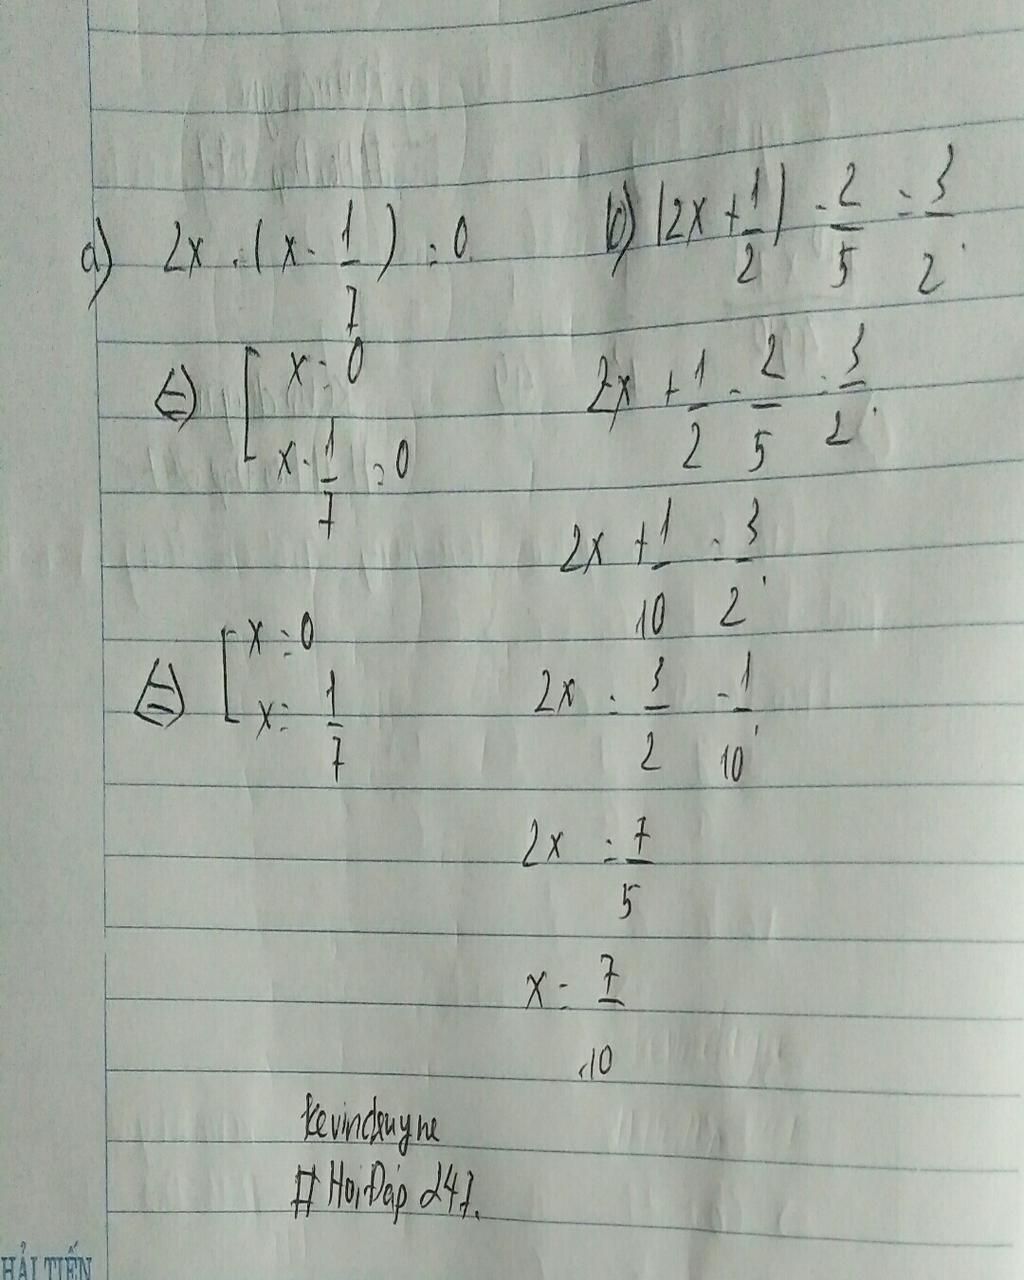 a) 2x . (x - 1/7) = 0
⇔ [ x = 0
x - 1/7 = 0
⇔ [ x = 0
x = 1/7
b) |2x + 1/2| - 2/5 = 3/2
2x + 1/2 - 2/5 = 3/2
2x + 1/10 = 3/2
2x = 3/2 - 1/10
2x = 7/5
x = 7/10
# HoiĐáp 247.
HẢI TIẾN